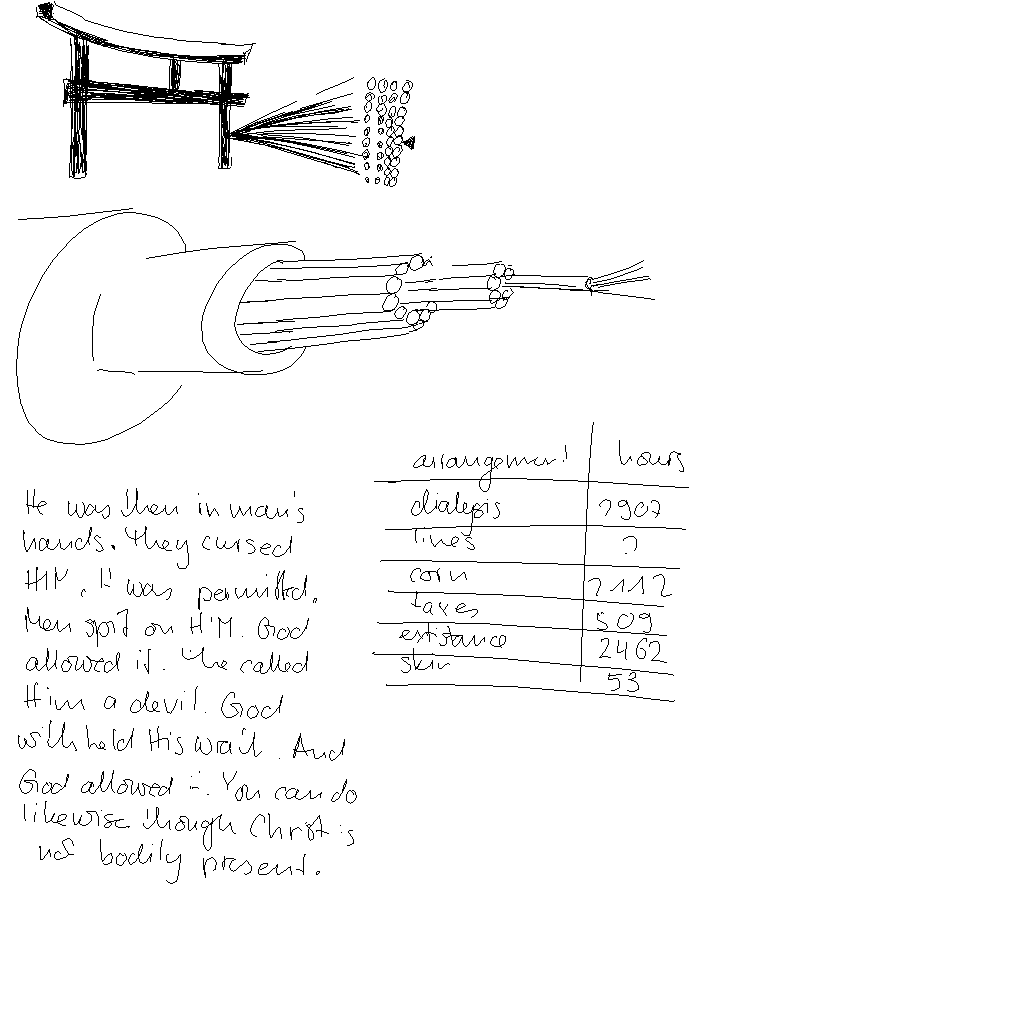 He was then in man's
hands. They cursed
HIM. It was permitted.
Men spit on HIM. God
allowed it. The called
Him a devil. God
withheld His wrath. And
God allowed it. You can do
likewise though Christ is
not bodily present.
arrangement hours
dialysis
lines ?
corn
taxes 509
2462
skin 53